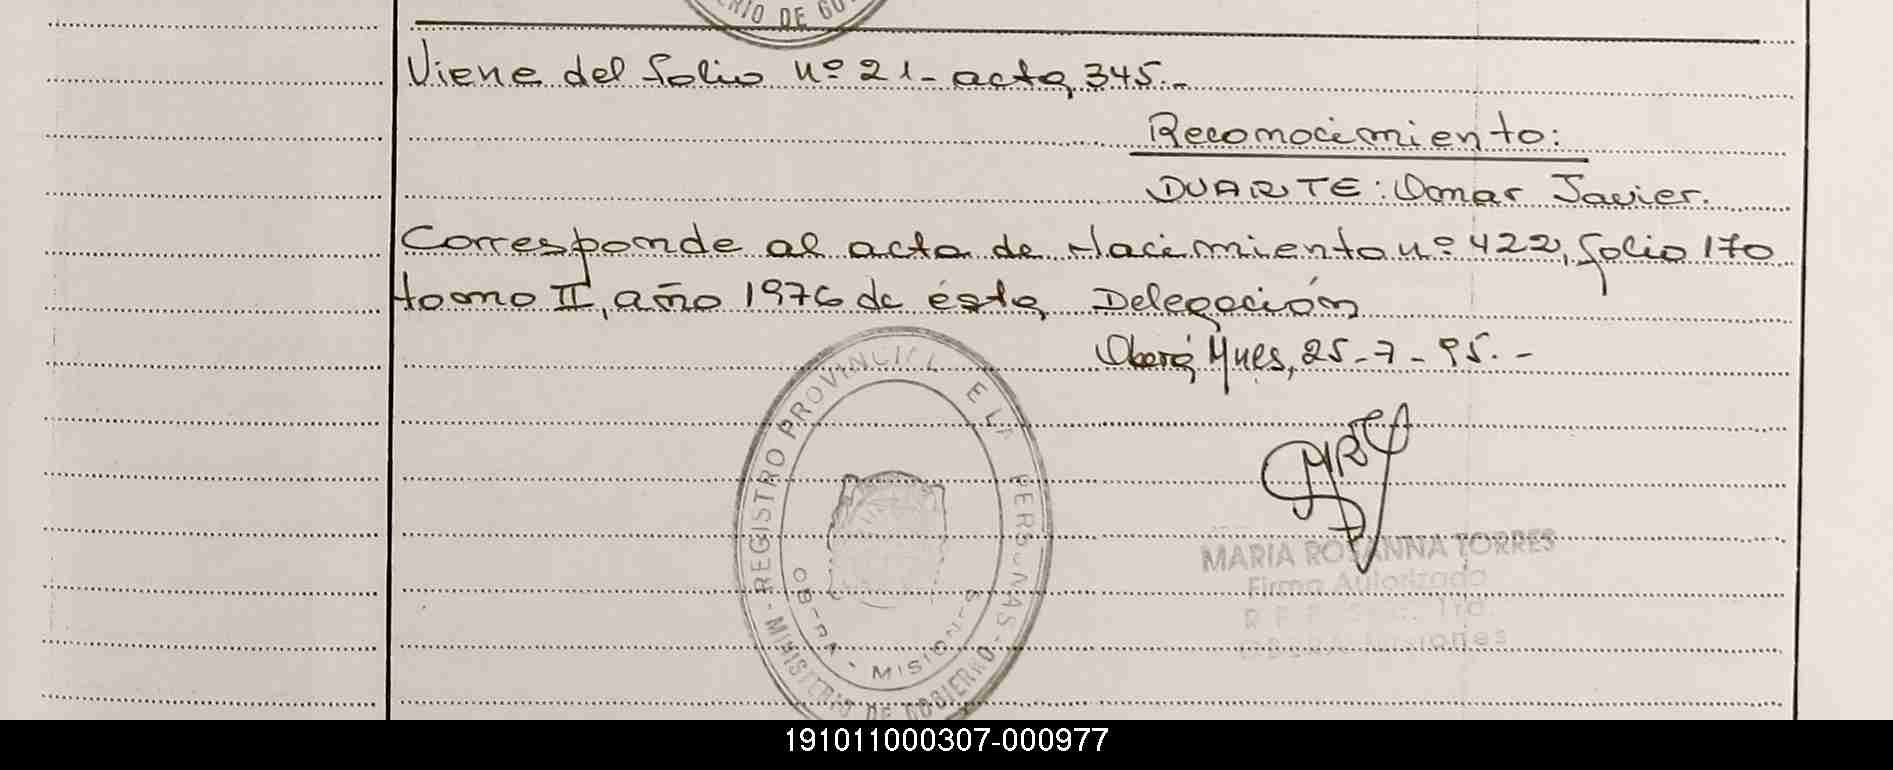 RIO DE GO
Viene del folio nº 21 - acta 345.-
Reconocimiento:
DUARTE: Omar Javier.
Corresponde al acta de Nacimiento nº 422, folio 170
tomo II, año 1976 de ésta Delegación
Oberá Mnes, 25-7-95.-
REGISTRO PROVINCIAL E LA PERSONAS
MINISTERIO DE GOBIERNO
OBERA - MISIONES
MARIA ROSANNA TORRES
Firma Autorizada
OBERA Misiones
191011000307-000977